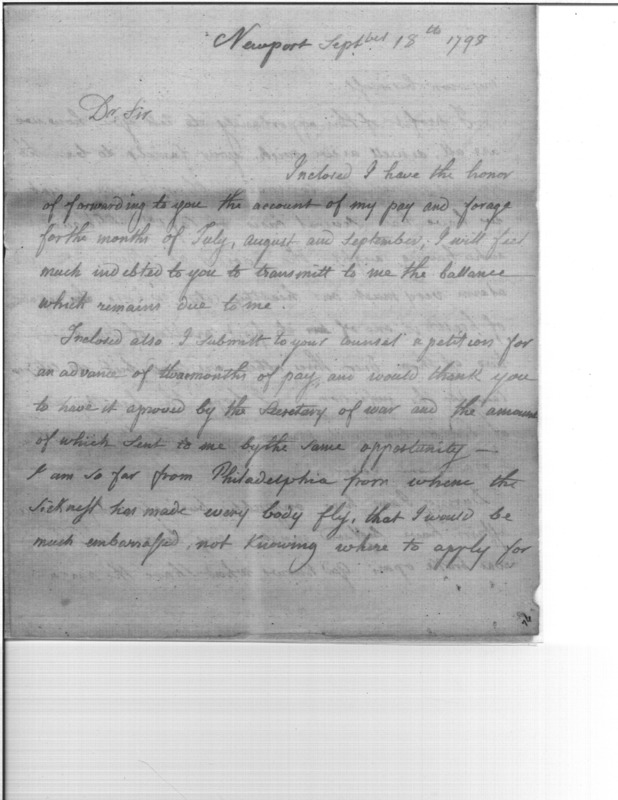 Newport Septber 18th 1798
Dr Sir
Inclosed I have the honor
of forwarding to you the account of my pay and forage
for the months of July, august and September, I will feel
much indebted to you to transmitt to me the ballance
which remains due to me.
Inclosed also I submitt to your counsel a petition for
an advance of months of pay, and would thank you
to have it aproved by the Secretary of war and the amount
of which sent to me by the same opportunity —
I am so far from Philadelphia from where the
Sickness has made every body fly, that I would be
much embarrassed, not Knowing where to apply for